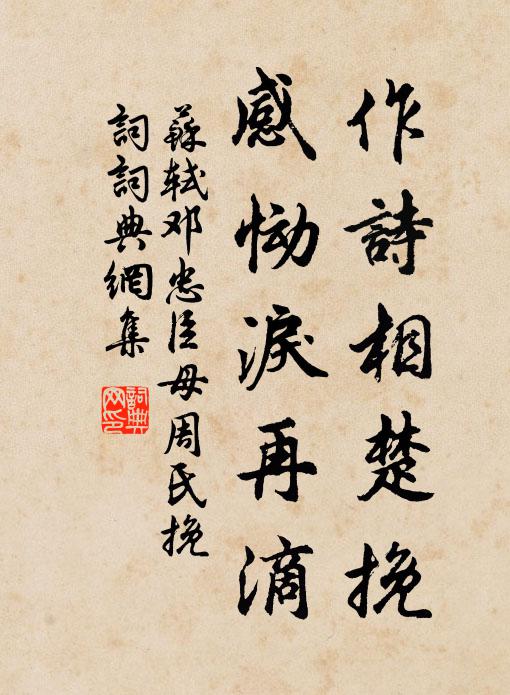 作詩相楚挽
感恸淚再滴
蘇轼邓忠臣母周氏挽
詞詞典網集
詞典
网印